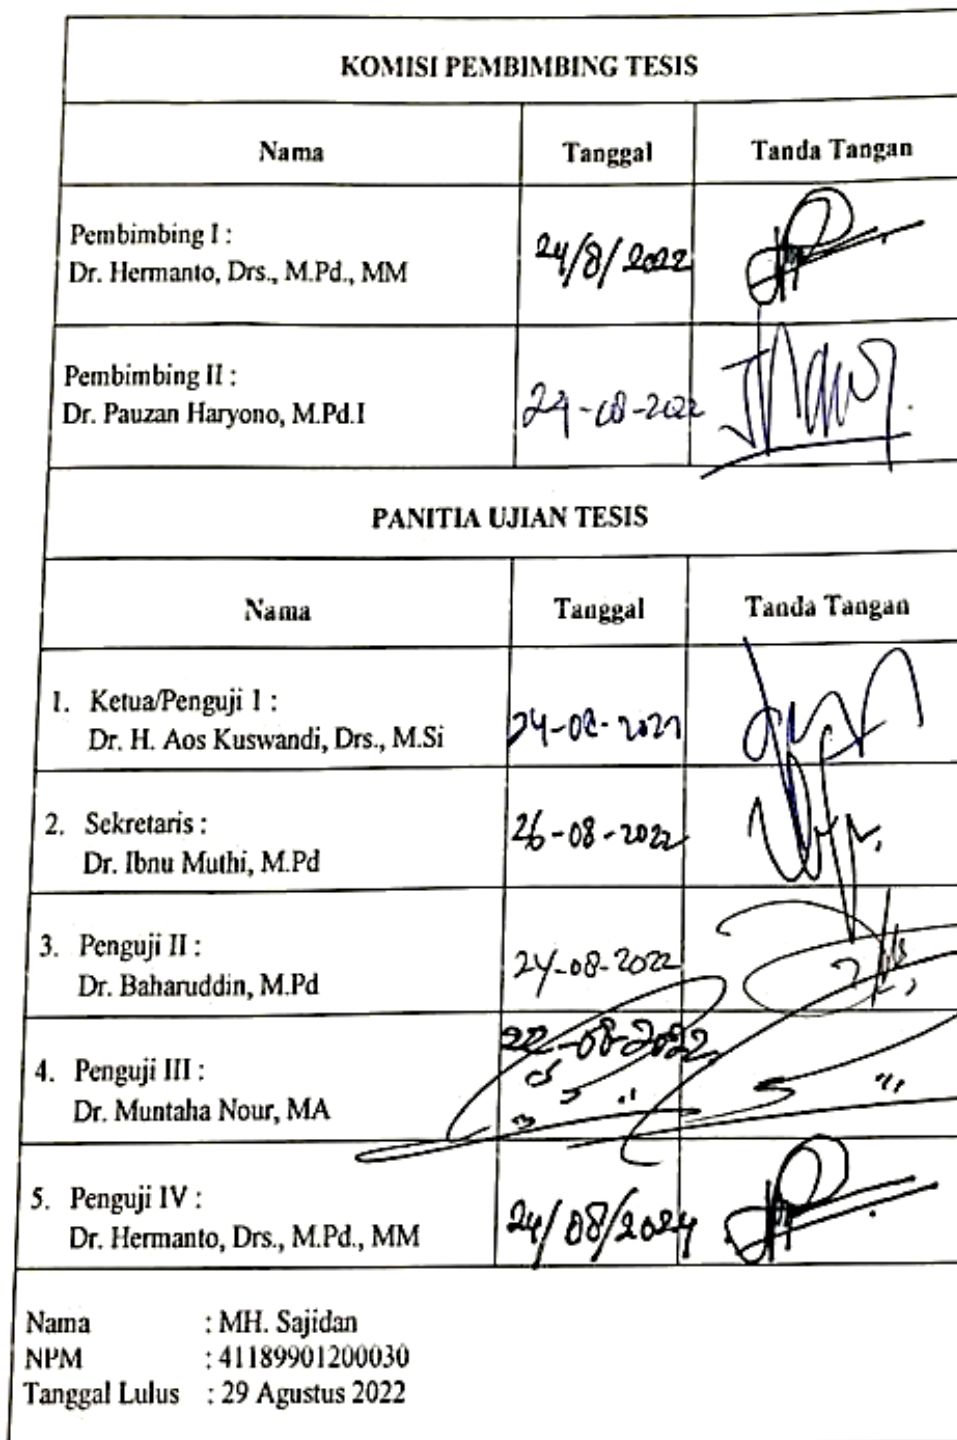 KOMISI PEMBIMBING TESIS
Nama Tanggal Tanda Tangan
Pembimbing I :
Dr. Hermanto, Drs., M.Pd., MM 24/8/2022
Pembimbing II :
Dr. Pauzan Haryono, M.Pd.I 24-08-2022
PANITIA UJIAN TESIS
Nama Tanggal Tanda Tangan
1. Ketua/Penguji 1 :
Dr. H. Aos Kuswandi, Drs., M.Si
2. Sekretaris :
Dr. Ibnu Muthi, M.Pd 26-08-2022
3. Penguji II :
Dr. Baharuddin, M.Pd 24-08-2022
4. Penguji III :
Dr. Muntaha Nour, MA
5. Penguji IV :
Dr. Hermanto, Drs., M.Pd., MM
Nama : MH. Sajidan
NPM : 41189901200030
Tanggal Lulus : 29 Agustus 2022